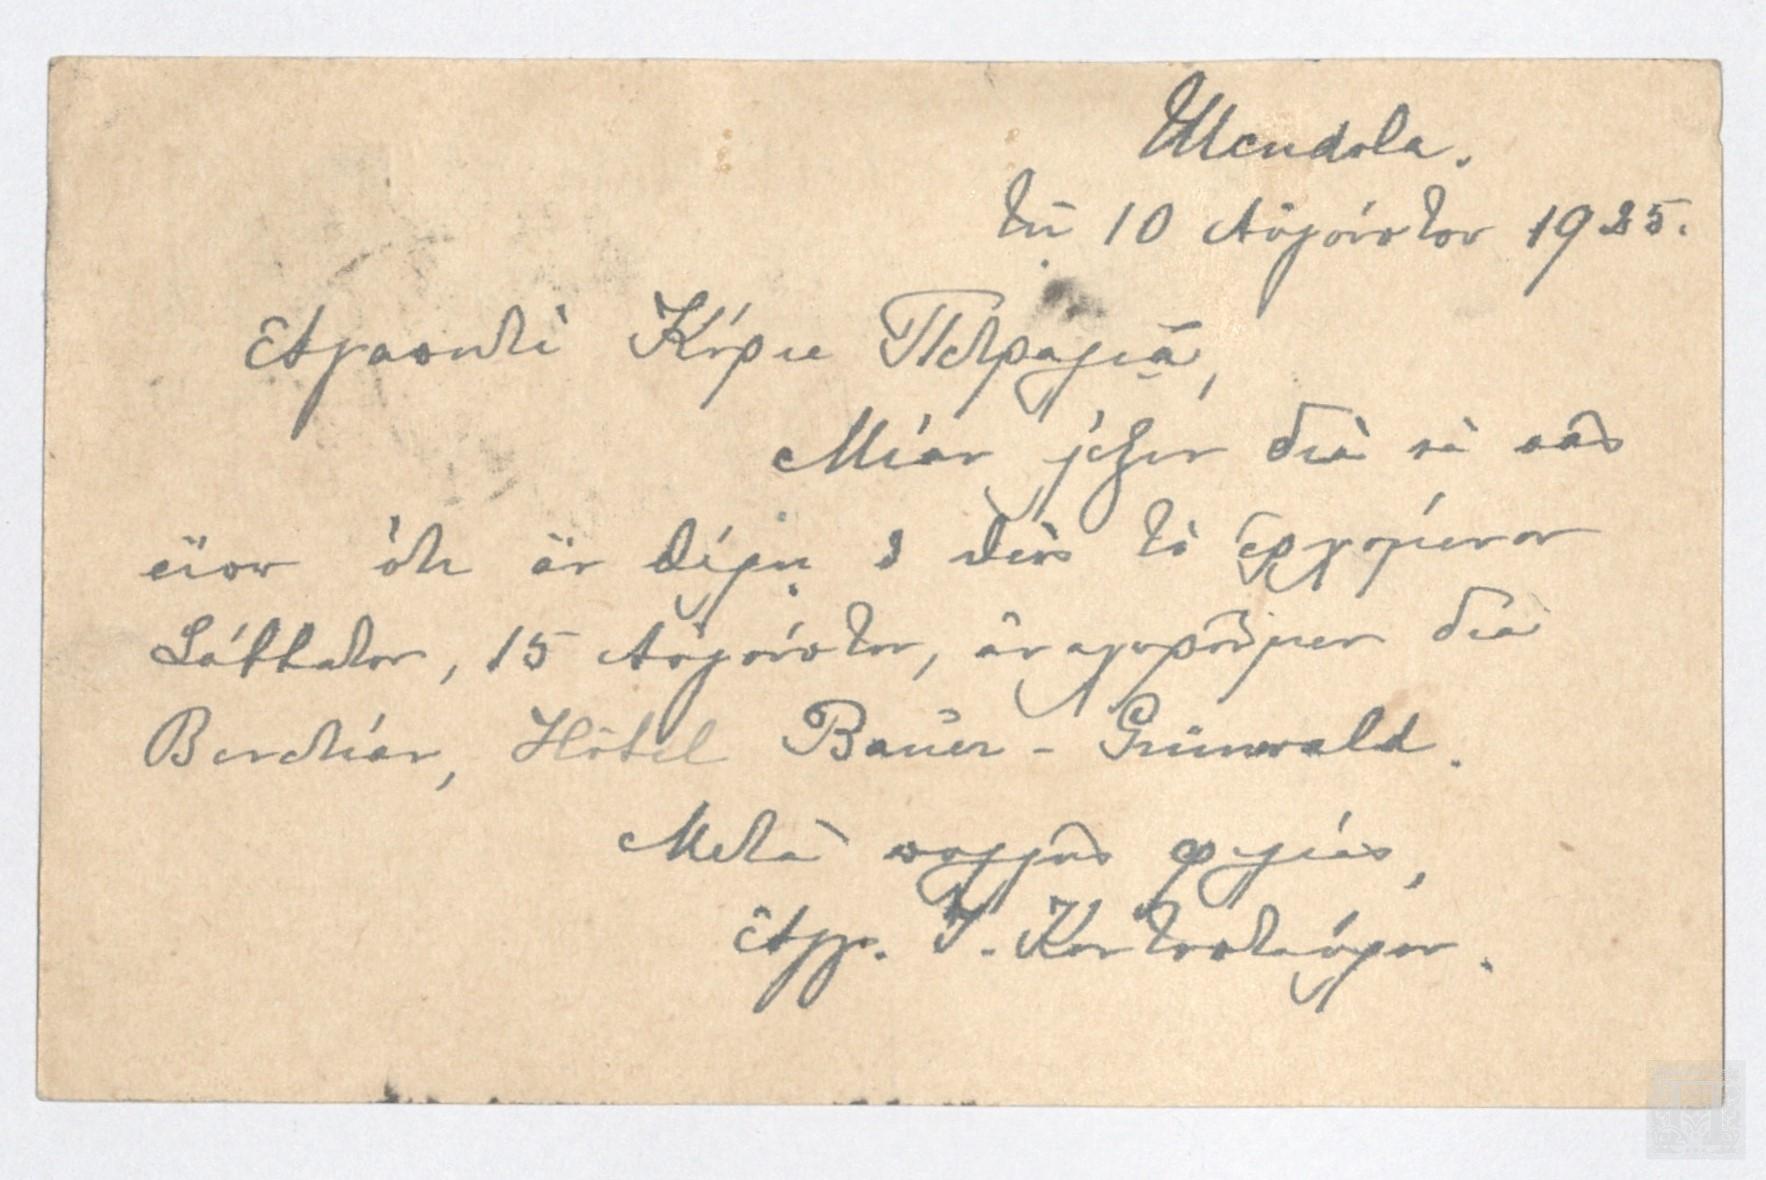 Mendola.
τῇ 10 Αὐγούστου 1925.
Ἀγαπητὲ Κύριε Πετραλιᾶ,
Μίαν λέξιν διὰ νὰ σᾶς
εἴπω ὅτι ἂν θέλῃ ὁ Θεὸς τὸ ἐρχόμενον
Σάββατον, 15 Αὐγούστου, ἀναχωροῦμεν διὰ
Βενετίαν, Hôtel Bauer - Grünwald.
Μετὰ πολλῆς φιλίας,